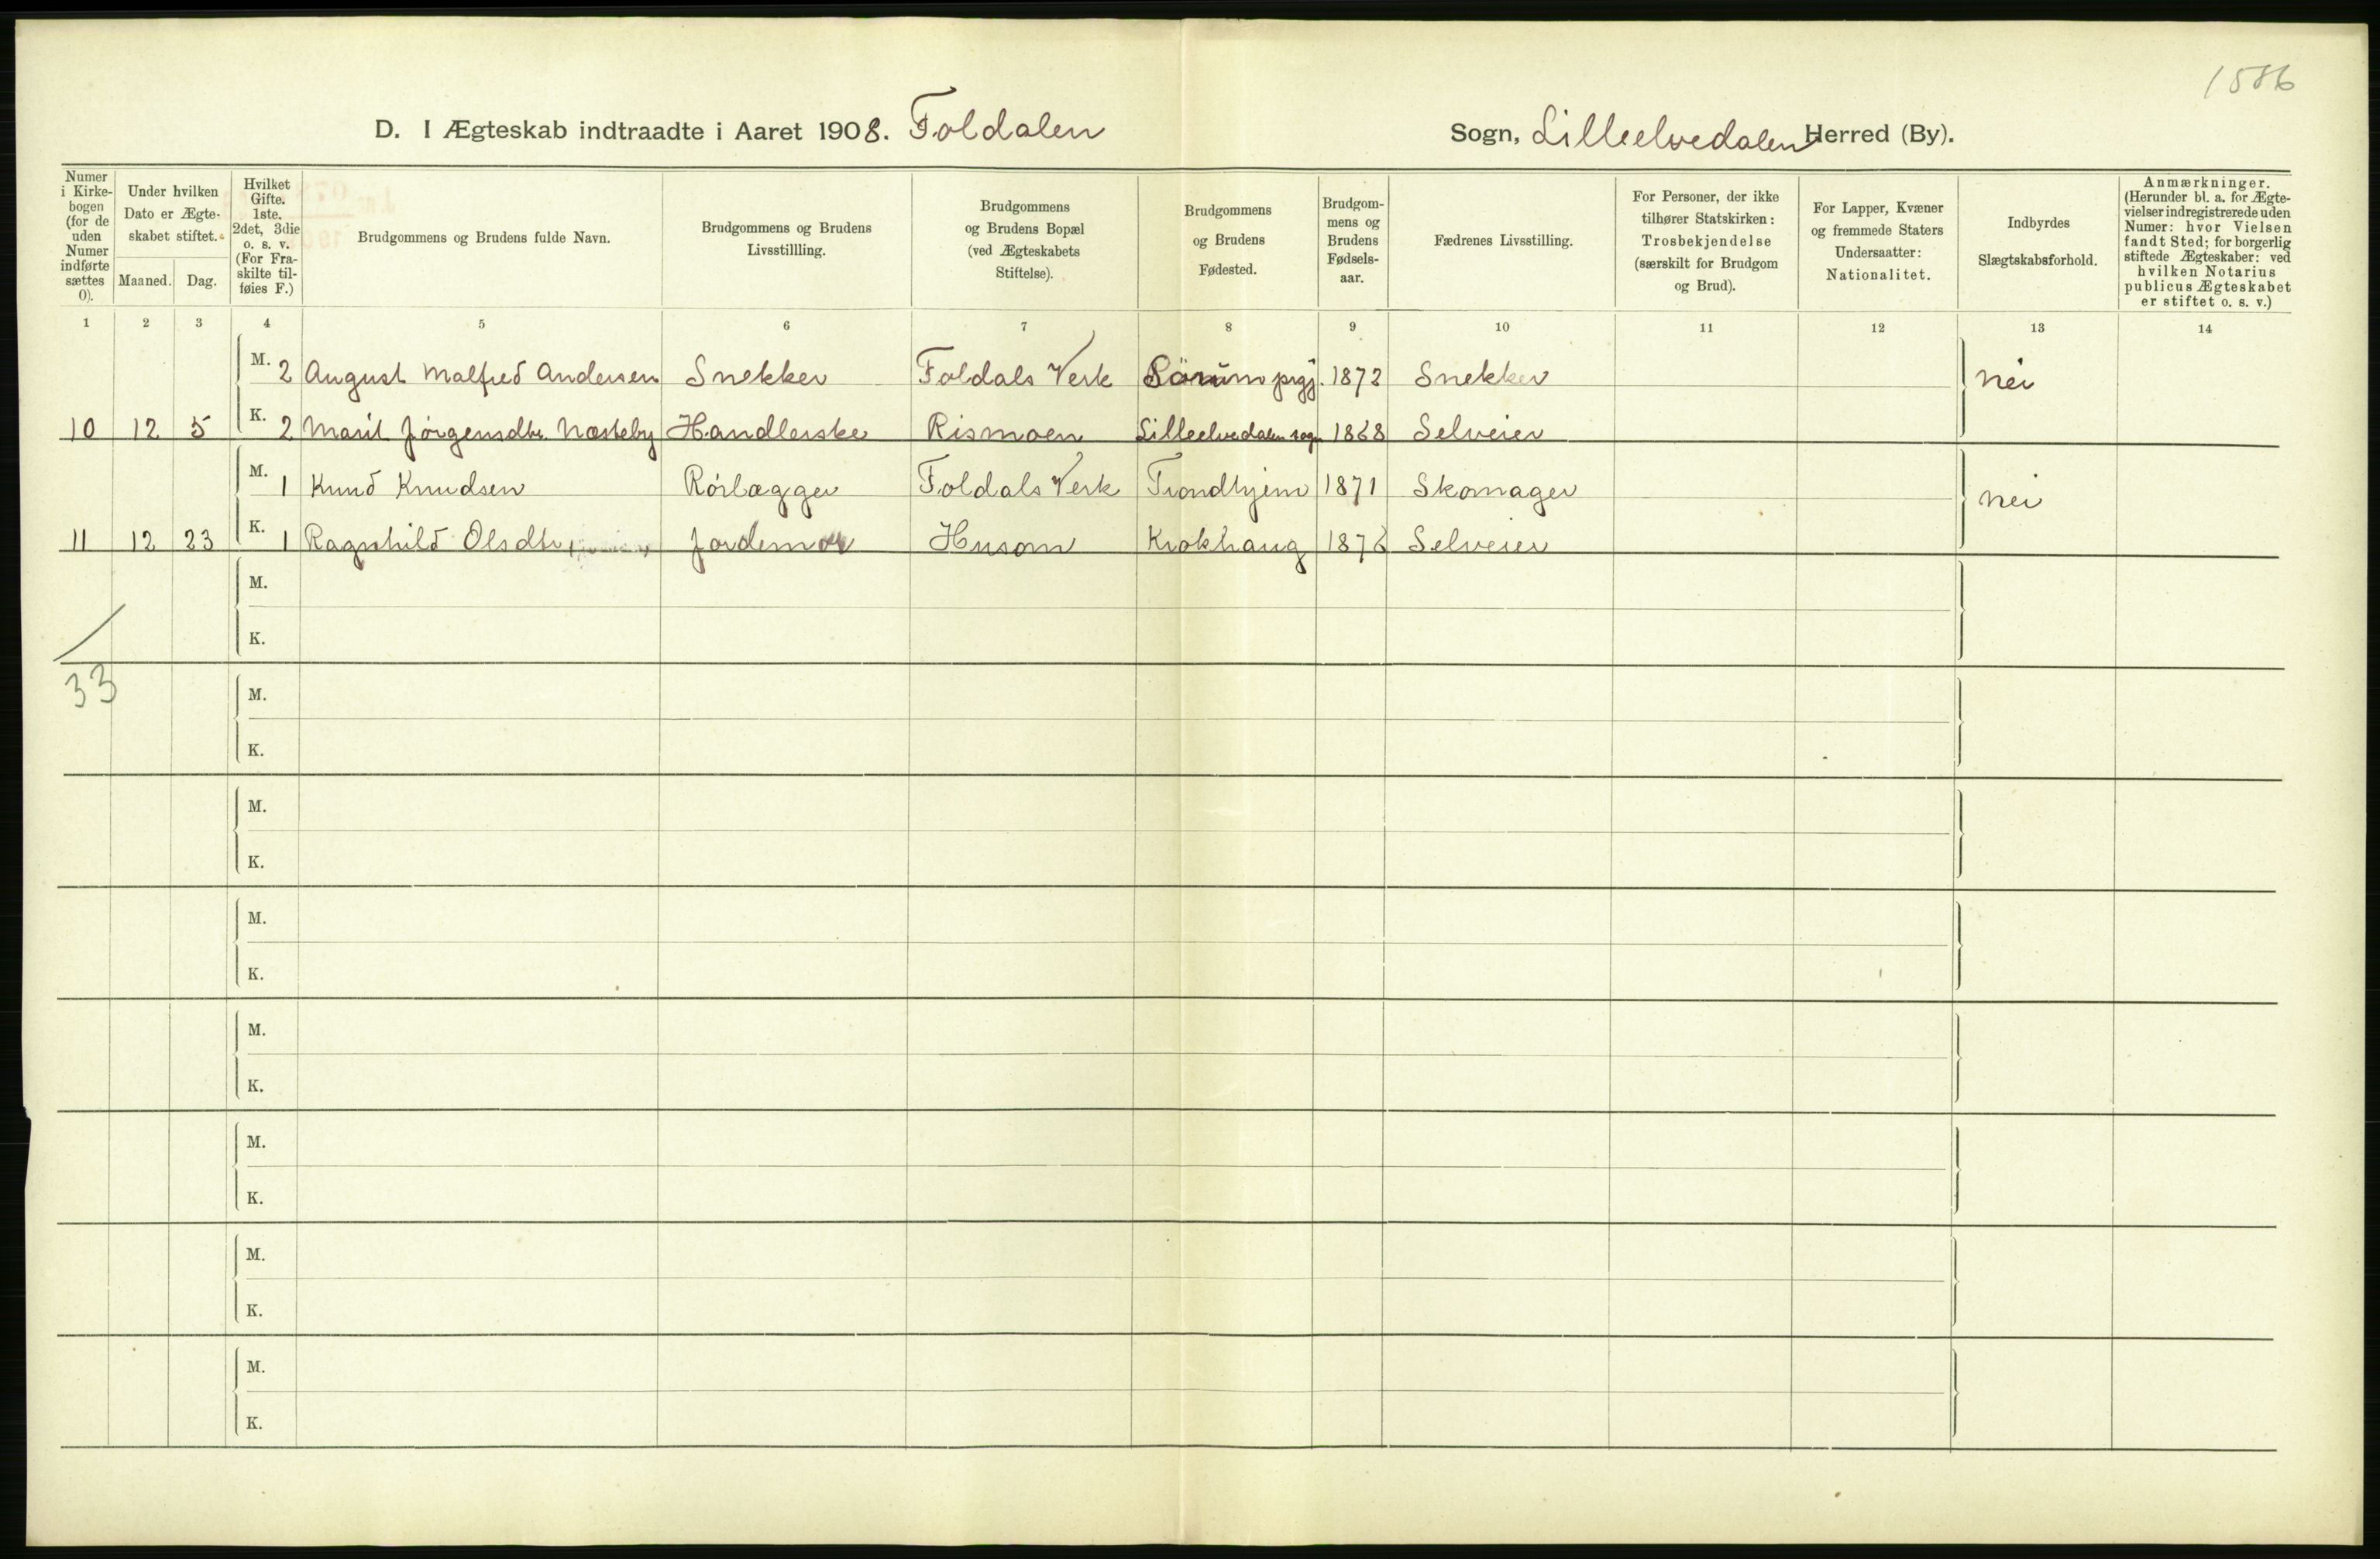 1586
D. I Ægteskab indtraadte i Aaret 1908. Foldalen Sogn, Lilleelvedalen Herred (By).
Numer i Kirke-bogen (for de uden Numer indførte sættes 0).
Under hvilken Dato er Ægte-skabet stiftet.
Maaned. Dag.
Hvilket Gifte. 1ste. 2det, 3die o. s. v. (For Fra-skilte til-føies F.)
Brudgommens og Brudens fulde Navn.
Brudgommens og Brudens Livsstillling.
Brudgommens og Brudens Bopæl (ved Ægteskabets Stiftelse).
Brudgommens og Brudens Fødested.
Brudgom-mens og Brudens Fødsels-aar.
Fædrenes Livsstilling.
For Personer, der ikke tilhører Statskirken: Trosbekjendelse (særskilt for Brudgom og Brud).
For Lapper, Kvæner og fremmede Staters Undersaatter: Nationalitet.
Indbyrdes Slægtskabsforhold.
Anmærkninger. (Herunder bl. a. for Ægte-vielser indregistrerede uden Numer: hvor Vielsen fandt Sted; for borgerlig stiftede Ægteskaber: ved hvilken Notarius publicus Ægteskabet er stiftet o. s. v.)
1 2 3 4 5 6 7 8 9 10 11 12 13 14
M. 2 August Malfred Andersen Snekker Foldals Verk Sörum prgj. 1872 Snekker nei
10 12 5 K. 2 Marit Jörgensdtr. Næsteby Handlerske Rismoen Lilleelvedalen sogn 1868 Selveier
M. 1 Knud Knudsen Rörlægger Foldals Verk Trondhjem 1871 Skomager nei
11 12 23 K. 1 Ragnhild Olsdtr. Jordemor Husom Krokhaug 1876 Selveier
M.
K.
33
M.
K.
M.
K.
M.
K.
M.
K.
M.
K.
M.
K.
M.
K.